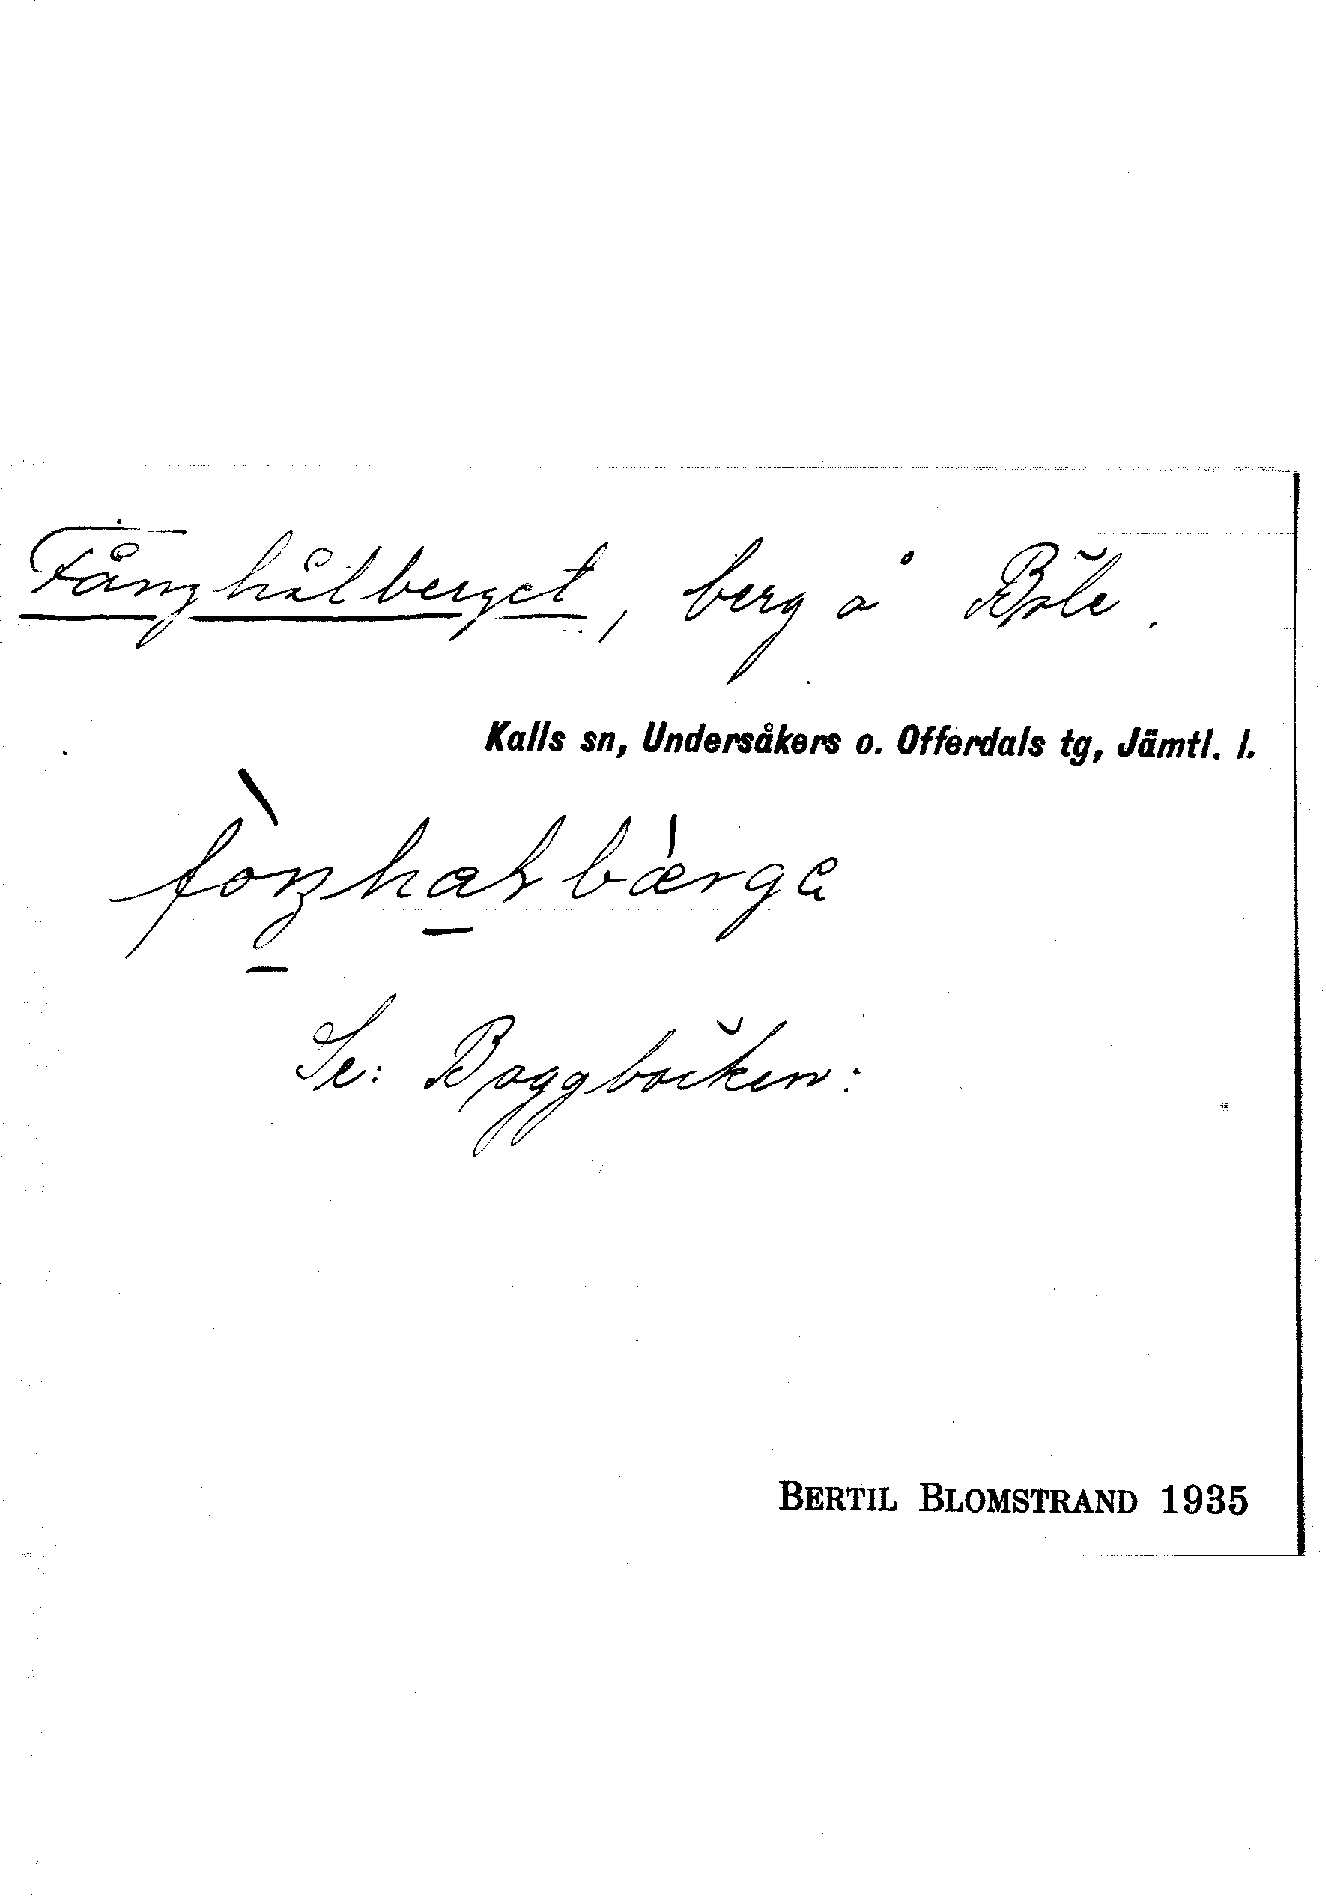 Fånghålberget, berg å Böle.
Kalls sn, Undersåkers o. Offerdals tg, Jämtl. l.
Se: Boggbäcken:
BERTIL BLOMSTRAND 1935